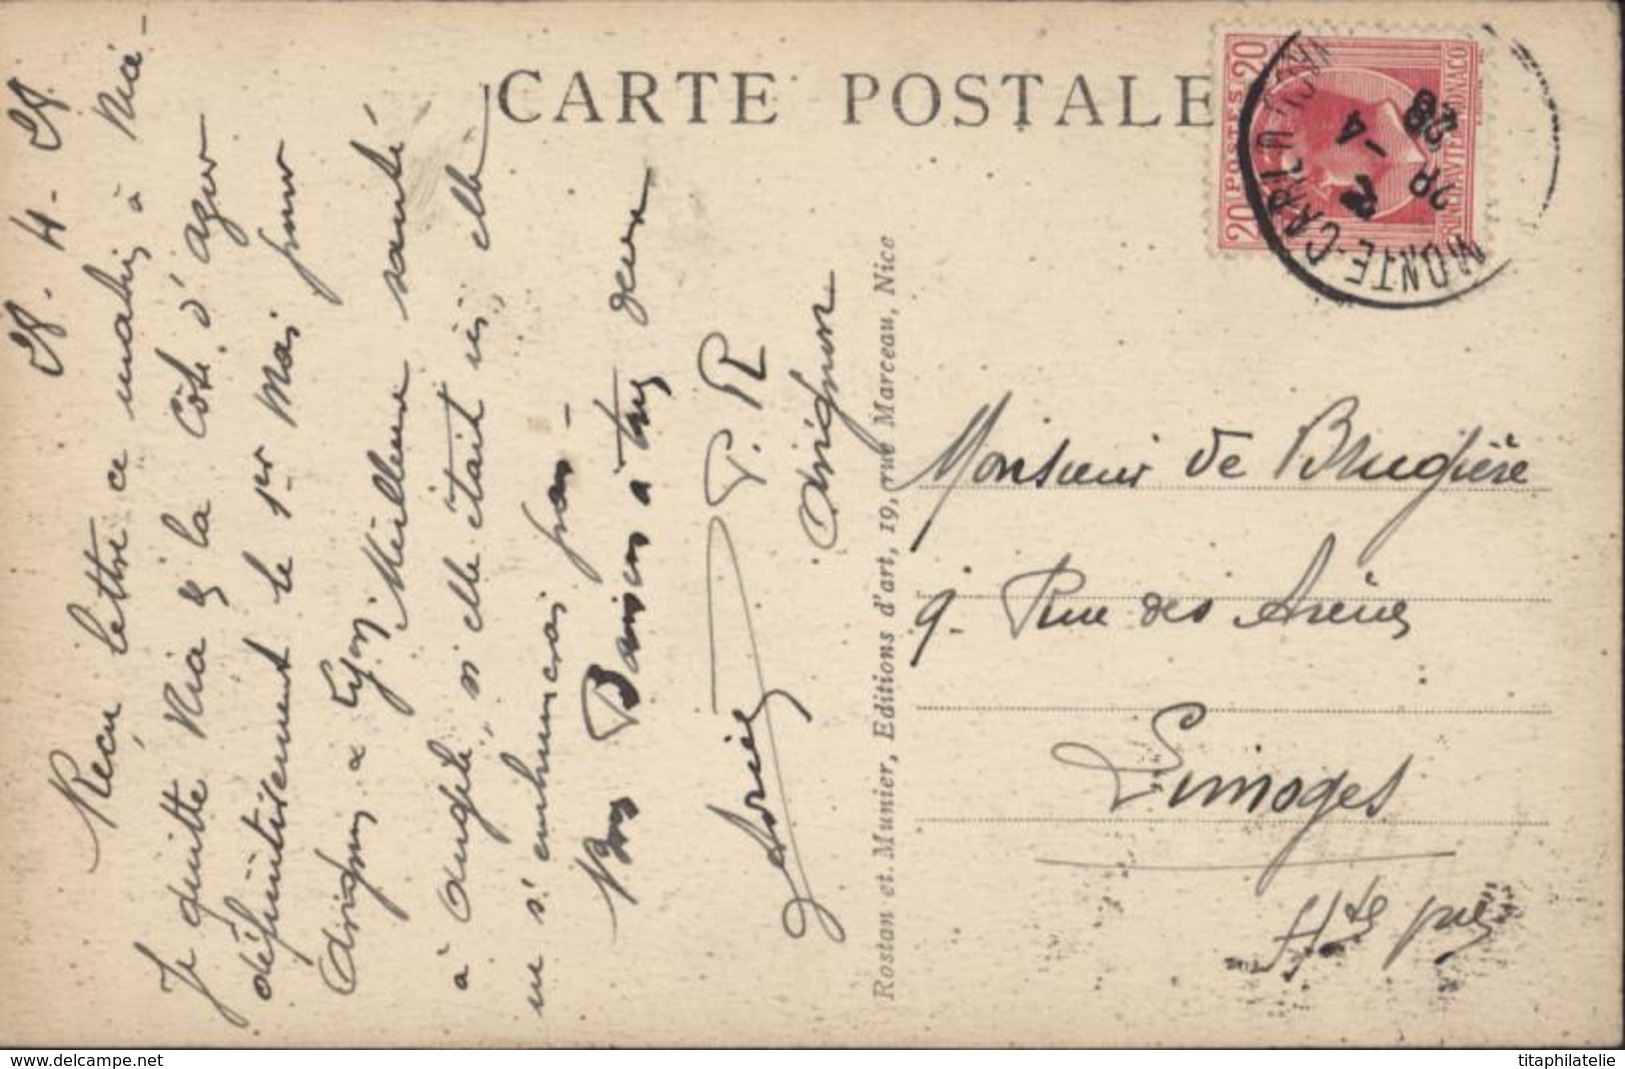 CARTE POSTALE
28. 4. 28.
Reçu lettre ce matin à Nice-
Je quitte Nice & la Côte d'azur
définitivement le 1er Mai pour
Avignon & Lyon. Meilleure santé
à Angèle, si elle était ici elle
ne s'enrhumerai pas -
Bons Baisers à tous deux
P. R
Adrien
Avignon
Rostan et Munier, Editions d'art, 19, rue Marceau, Nice
20 POSTES 20
MONACO
MONTE-CARLO
28
-4
28
Monsieur de Brugière
9. Rue des Arènes
Limoges
Hte
www.delcampe.net
titaphilatelie